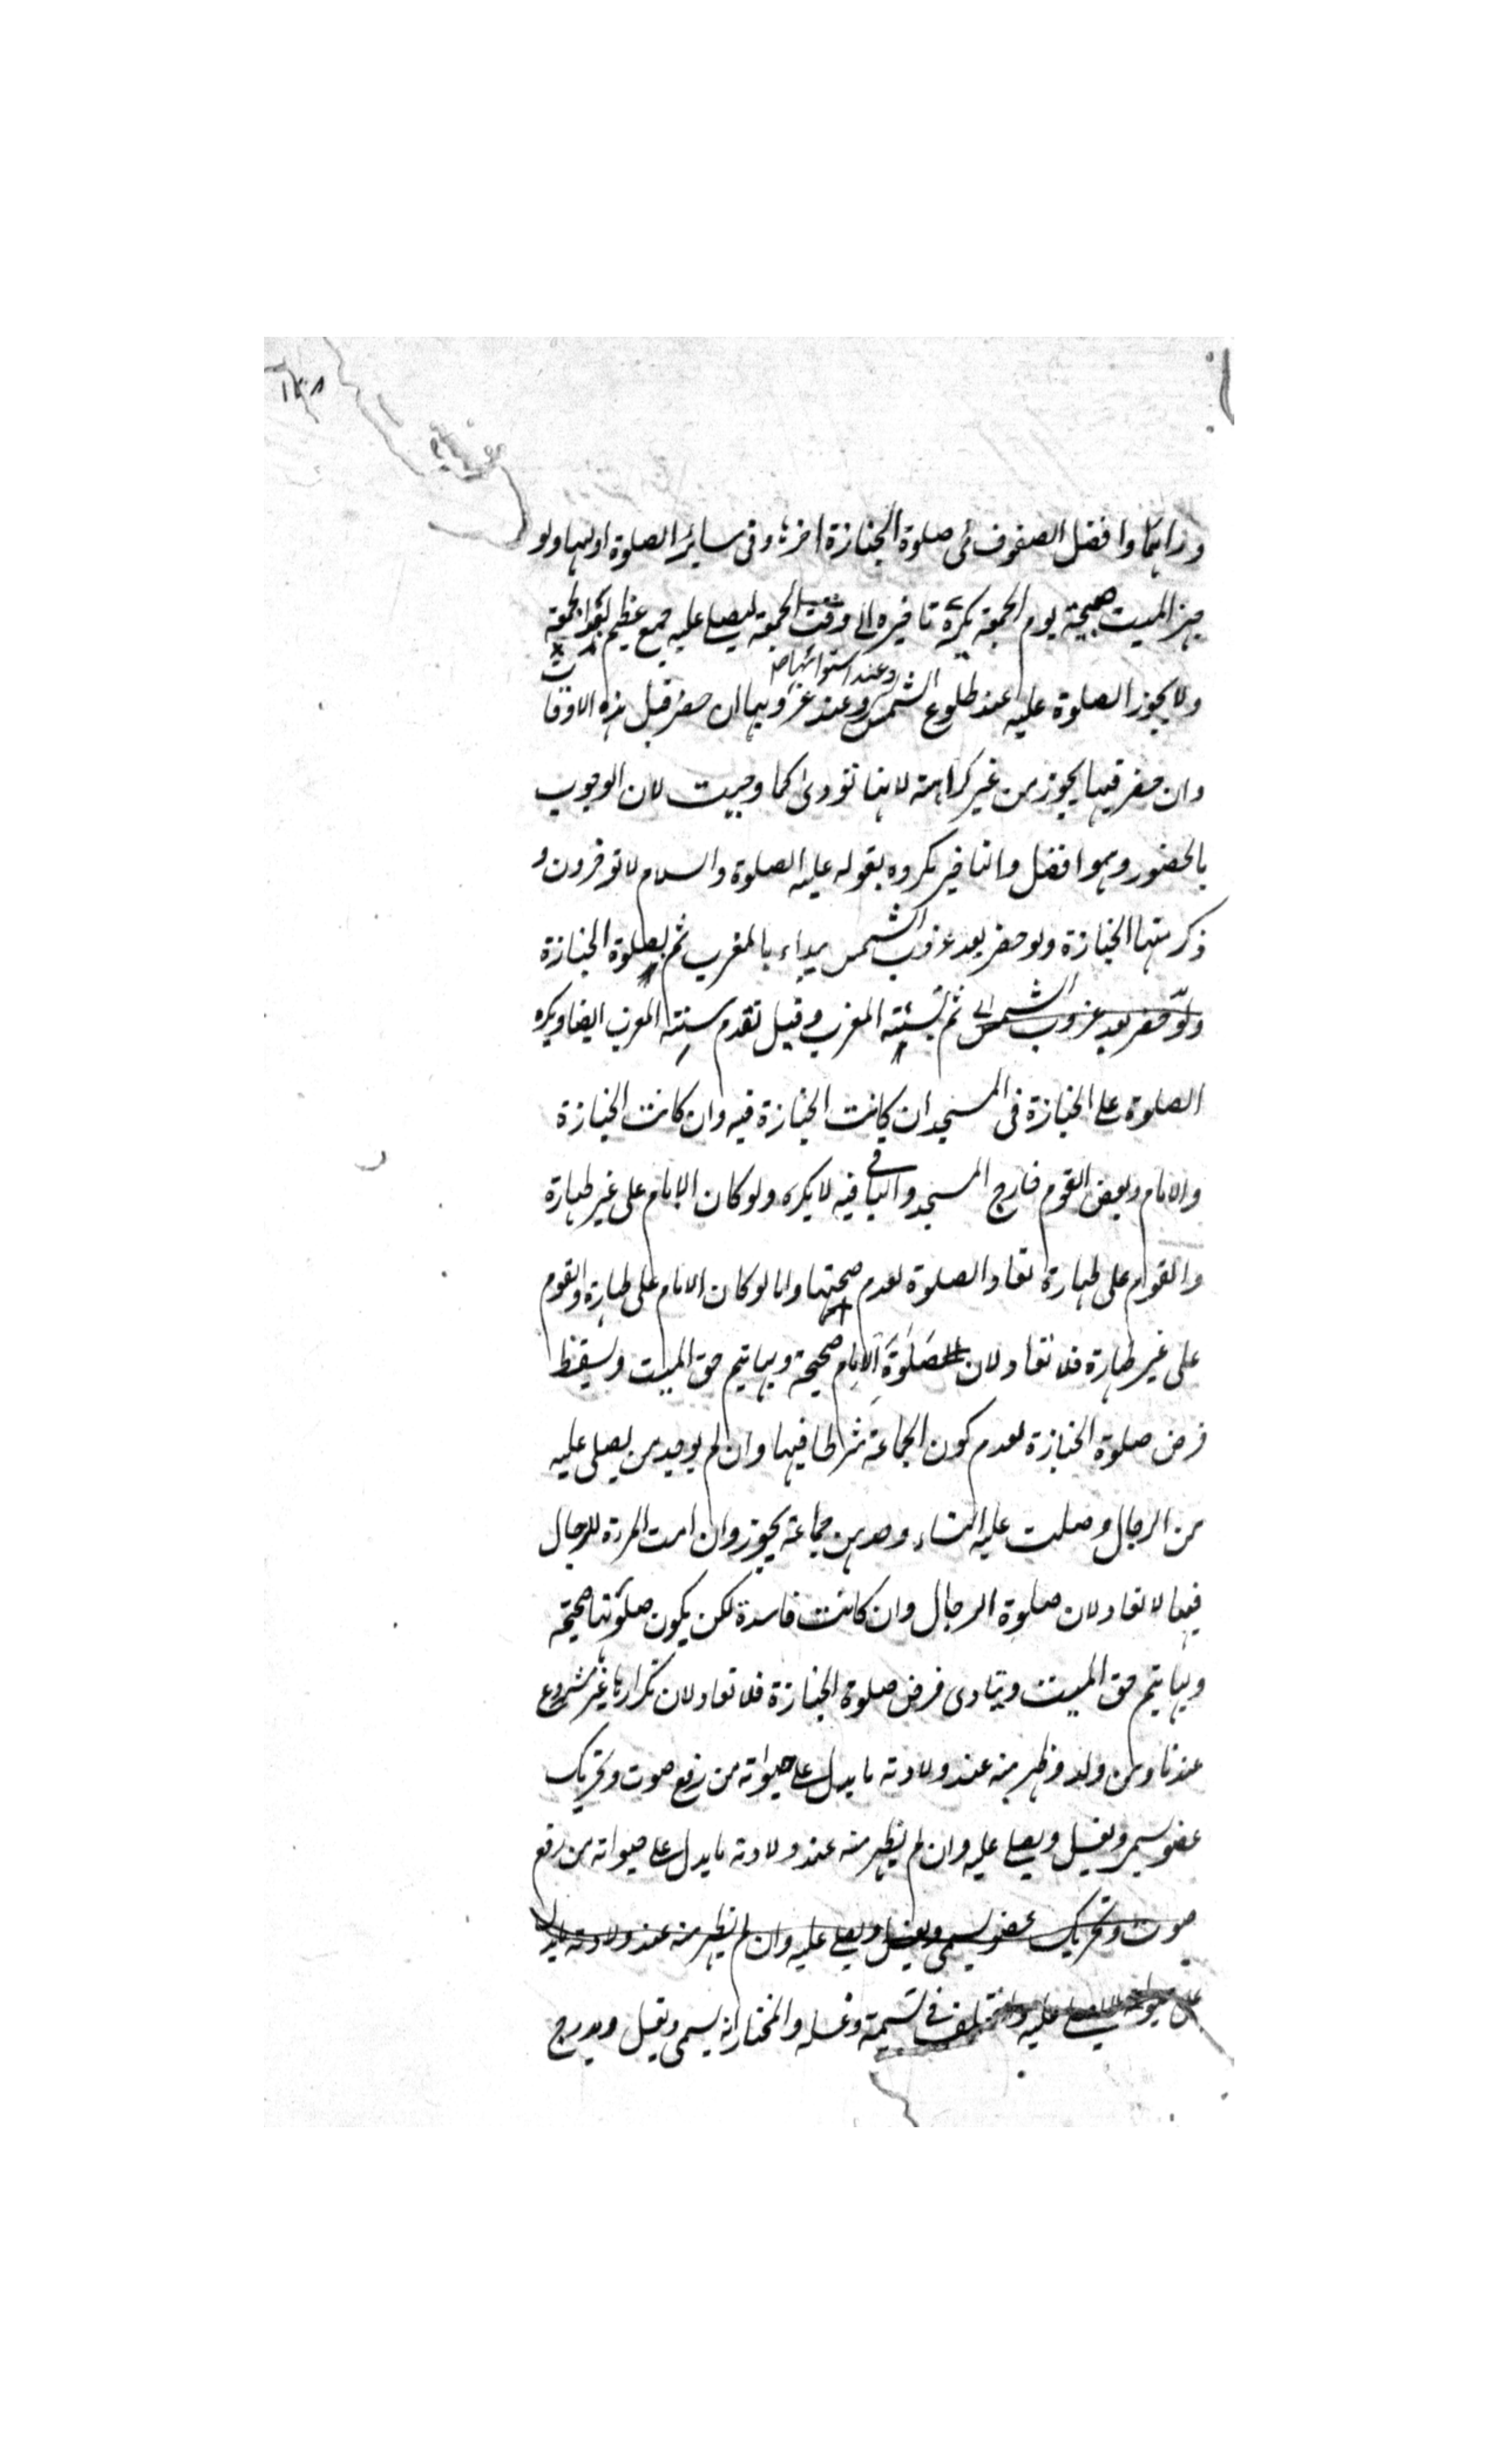 ١٤٨
وراءهما وافضل الصفوف فى صلوة الجنازة اخرها وفى سائر الصلوة اولها ولو
جهز الميت صبيحة يوم الجمعة يكره تاخيره الى وقت الجمعة ليصلى عليه جمع عظيم بعد الجمعة
وعند استوائها صح
ولا يجوز الصلوة عليه عند طلوع الشمس وعند غروبها ان حضر قبل هذه الاوقات
وان حضر فيها يجوز من غير كراهة لانها تؤدى كما وجبت لان الوجوب
بالحضور وهو افضل والتاخير مكروه بقوله عليه الصلوة والسلام لا تؤخرون و
ذكر منها الجنازة ولو حضر بعد غروب الشمس يبداء بالمغرب ثم بصلوة الجنازة
ولو حضر بعد غروب الشمس ثم بسنة المغرب وقيل تقدم سنة المغرب ايضا ويكره
الصلوة على الجنازة فى المسجد ان كانت الجنازة فيه وان كانت الجنازة
والامام وبعض القوم خارج المسجد والباقى فيه لا يكره ولو كان الامام على غير طهارة
والقوم على طهارة تعاد الصلوة لعدم صحتها واما لو كان الامام على طهارة والقوم
على غير طهارة فلا تعاد لان صلوة الامام صحيحة وبها يتم حق الميت ويسقط
فرض صلوة الجنازة لعدم كون الجماعة شرطا فيها وان لم يوجد من يصلى عليه
من الرجال وصلت عليه النساء وحدهن جماعة يجوز وان امت المرءة للرجال
فيها لا تعاد لان صلوة الرجال وان كانت فاسدة لكن يكون صلوتها صحيحة
وبها يتم حق الميت ويتادى فرض صلوة الجنازة فلا تعاد لان تكرارها غير مشروع
عندنا ومن ولد وظهر منه عند ولادته ما يدل على حيواته من رفع صوت وتحريك
عضو يسمى ويغسل ويصلى عليه وان لم يظهر منه عند ولادته ما يدل على حيواته من رفع
صوت وتحريك عضو يسمى ويغسل ويصلى عليه وان لم يظهر منه عند ولادته ما يدل
على حيواته لا يصلى عليه واختلف فى تسميته وغسله والمختار انه يسمى ويغسل ويدرج